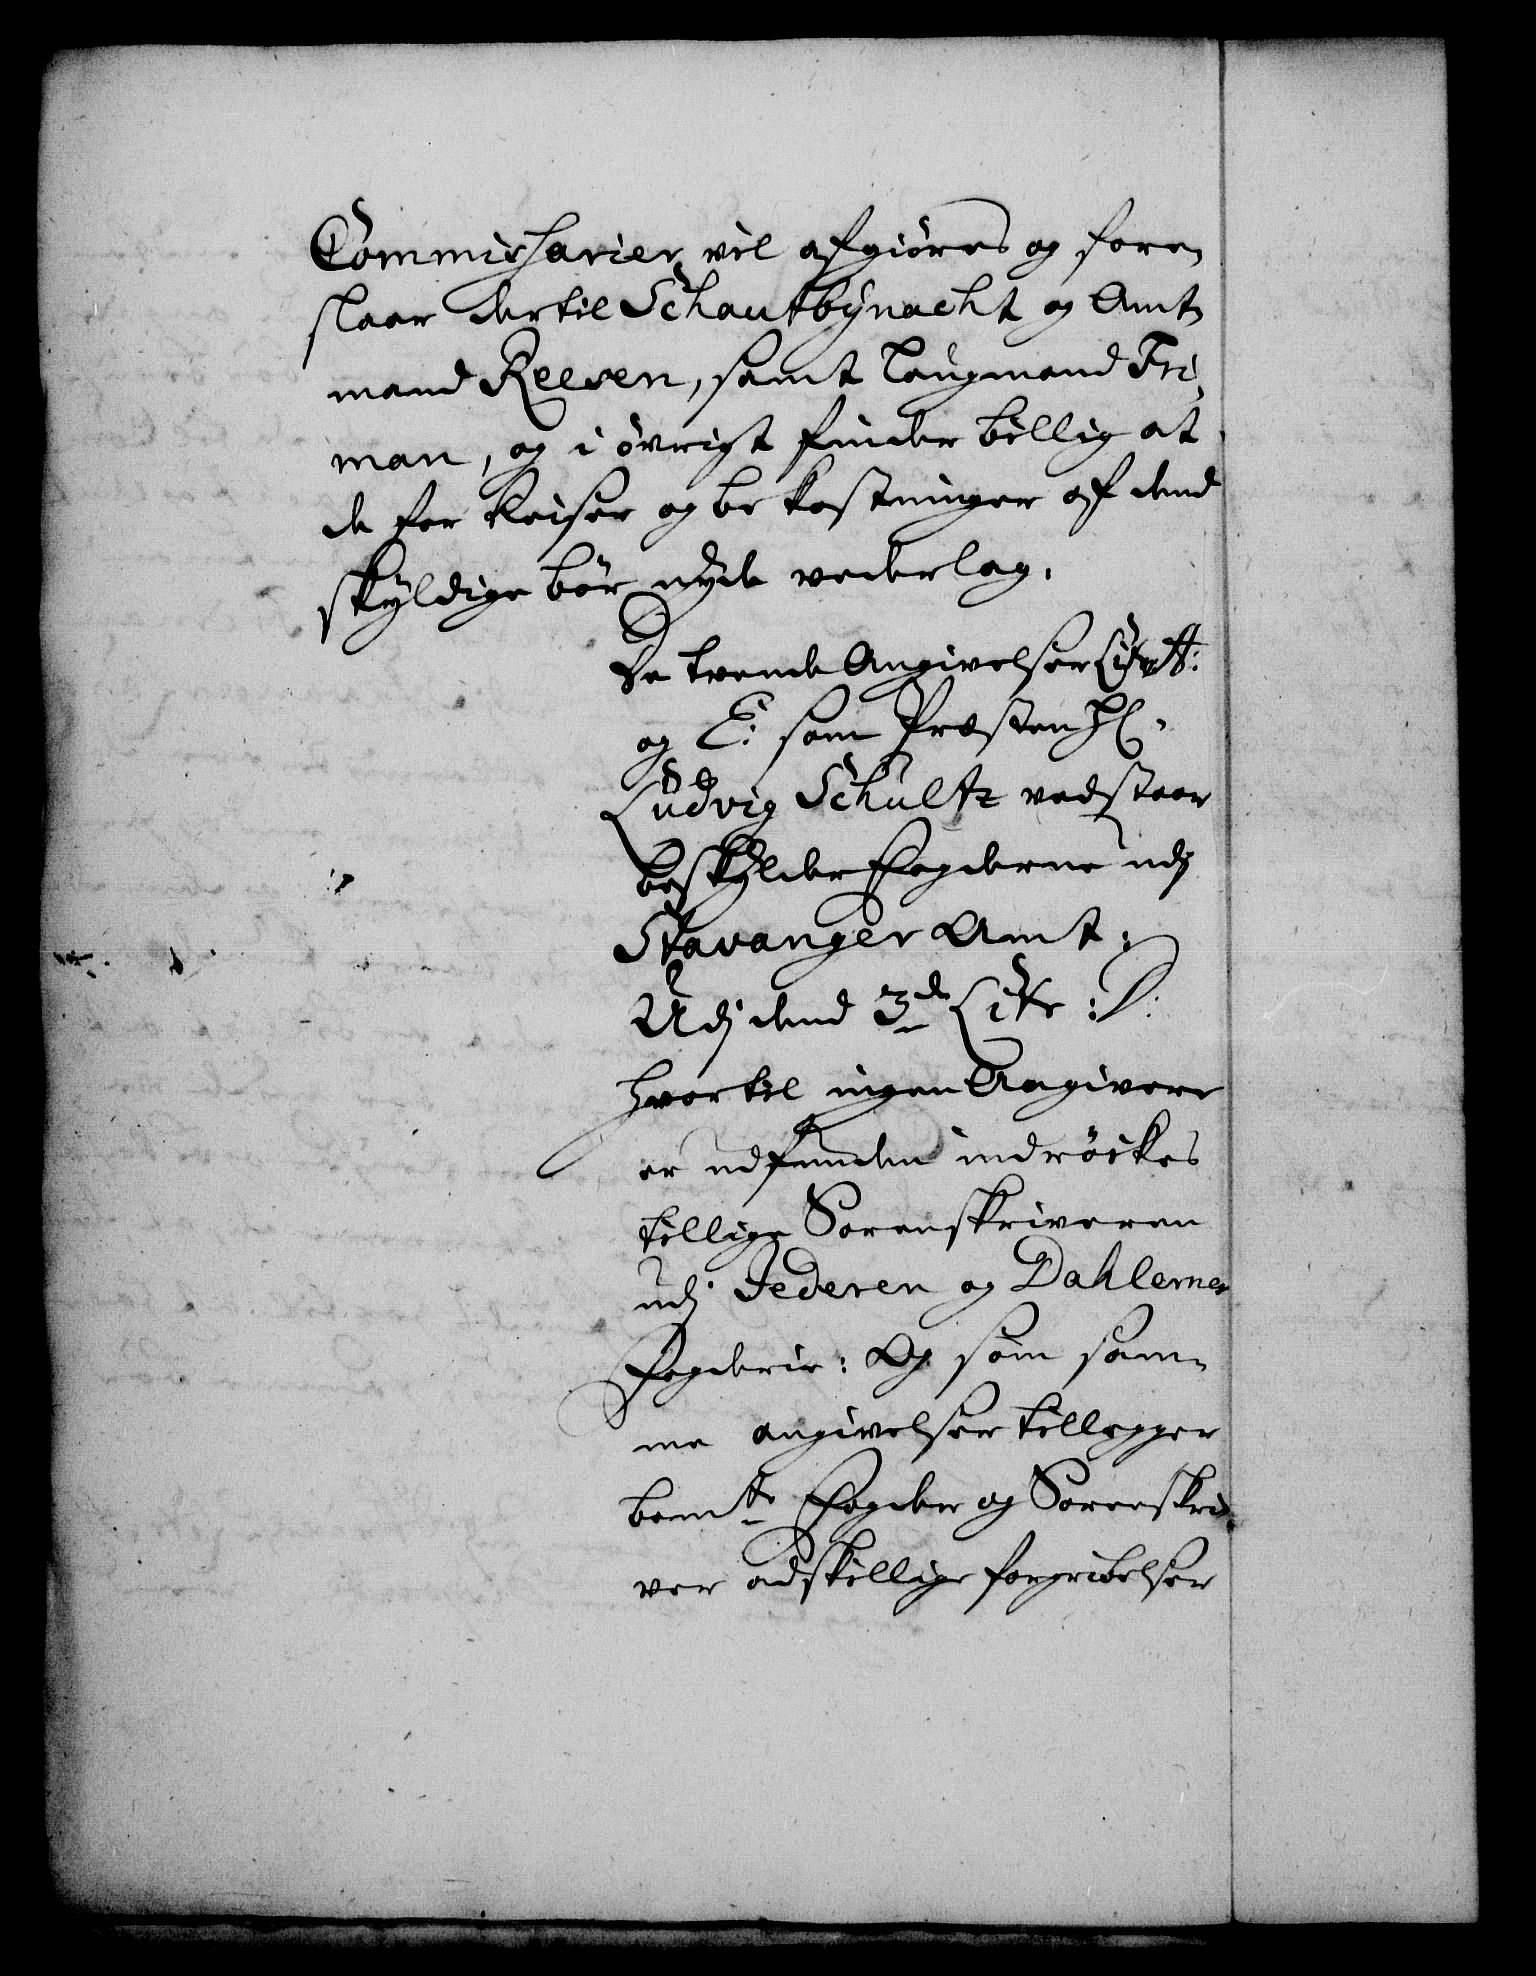 Commissarier vil afgiöres og fore,
slaar dertil Schautbÿnacht og Amt,
mand Reesen, samt Laugmand Fri,
man, og i övrigt finder billig at
de for Reiser og be kostninger af dend
skÿldige bör nÿde vederlag.
De tvende Angivelser Litr: A:
og E: som Præsten Hr.
Ludvig Schultz vedstaar
beskÿlder Fogderne udj
Stavanger Amt:
Udj dend 3de Litr: D:
hvortil ingen Angivere
er udfunden indröckes
tillige Sorenskriveren
udj Jederen og Dahlernes
Fogderie: Og som sam,
me angivelser tillegger
bemte Fogder og Sorenskri,
ver adskillige forgribelser